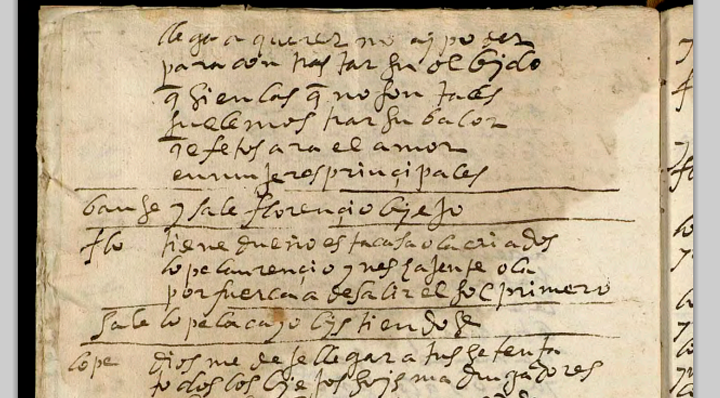 llega a querer no ay poder
para contrastar su olbido
q̄ si en las q̄ no son tales
suele mostrar su balor
q̄ efetos ara el amor
en mujeres principales
banse y sale florençio biejo
flo tiene dueño esta casa ola criados
lope laurençio ynes ha jente ola
por fuerça a de salir el sol primero
sale lope lacayo bistiendose
lope dios me deje llegar a tus setenta
todos los biejos sois madrugadores